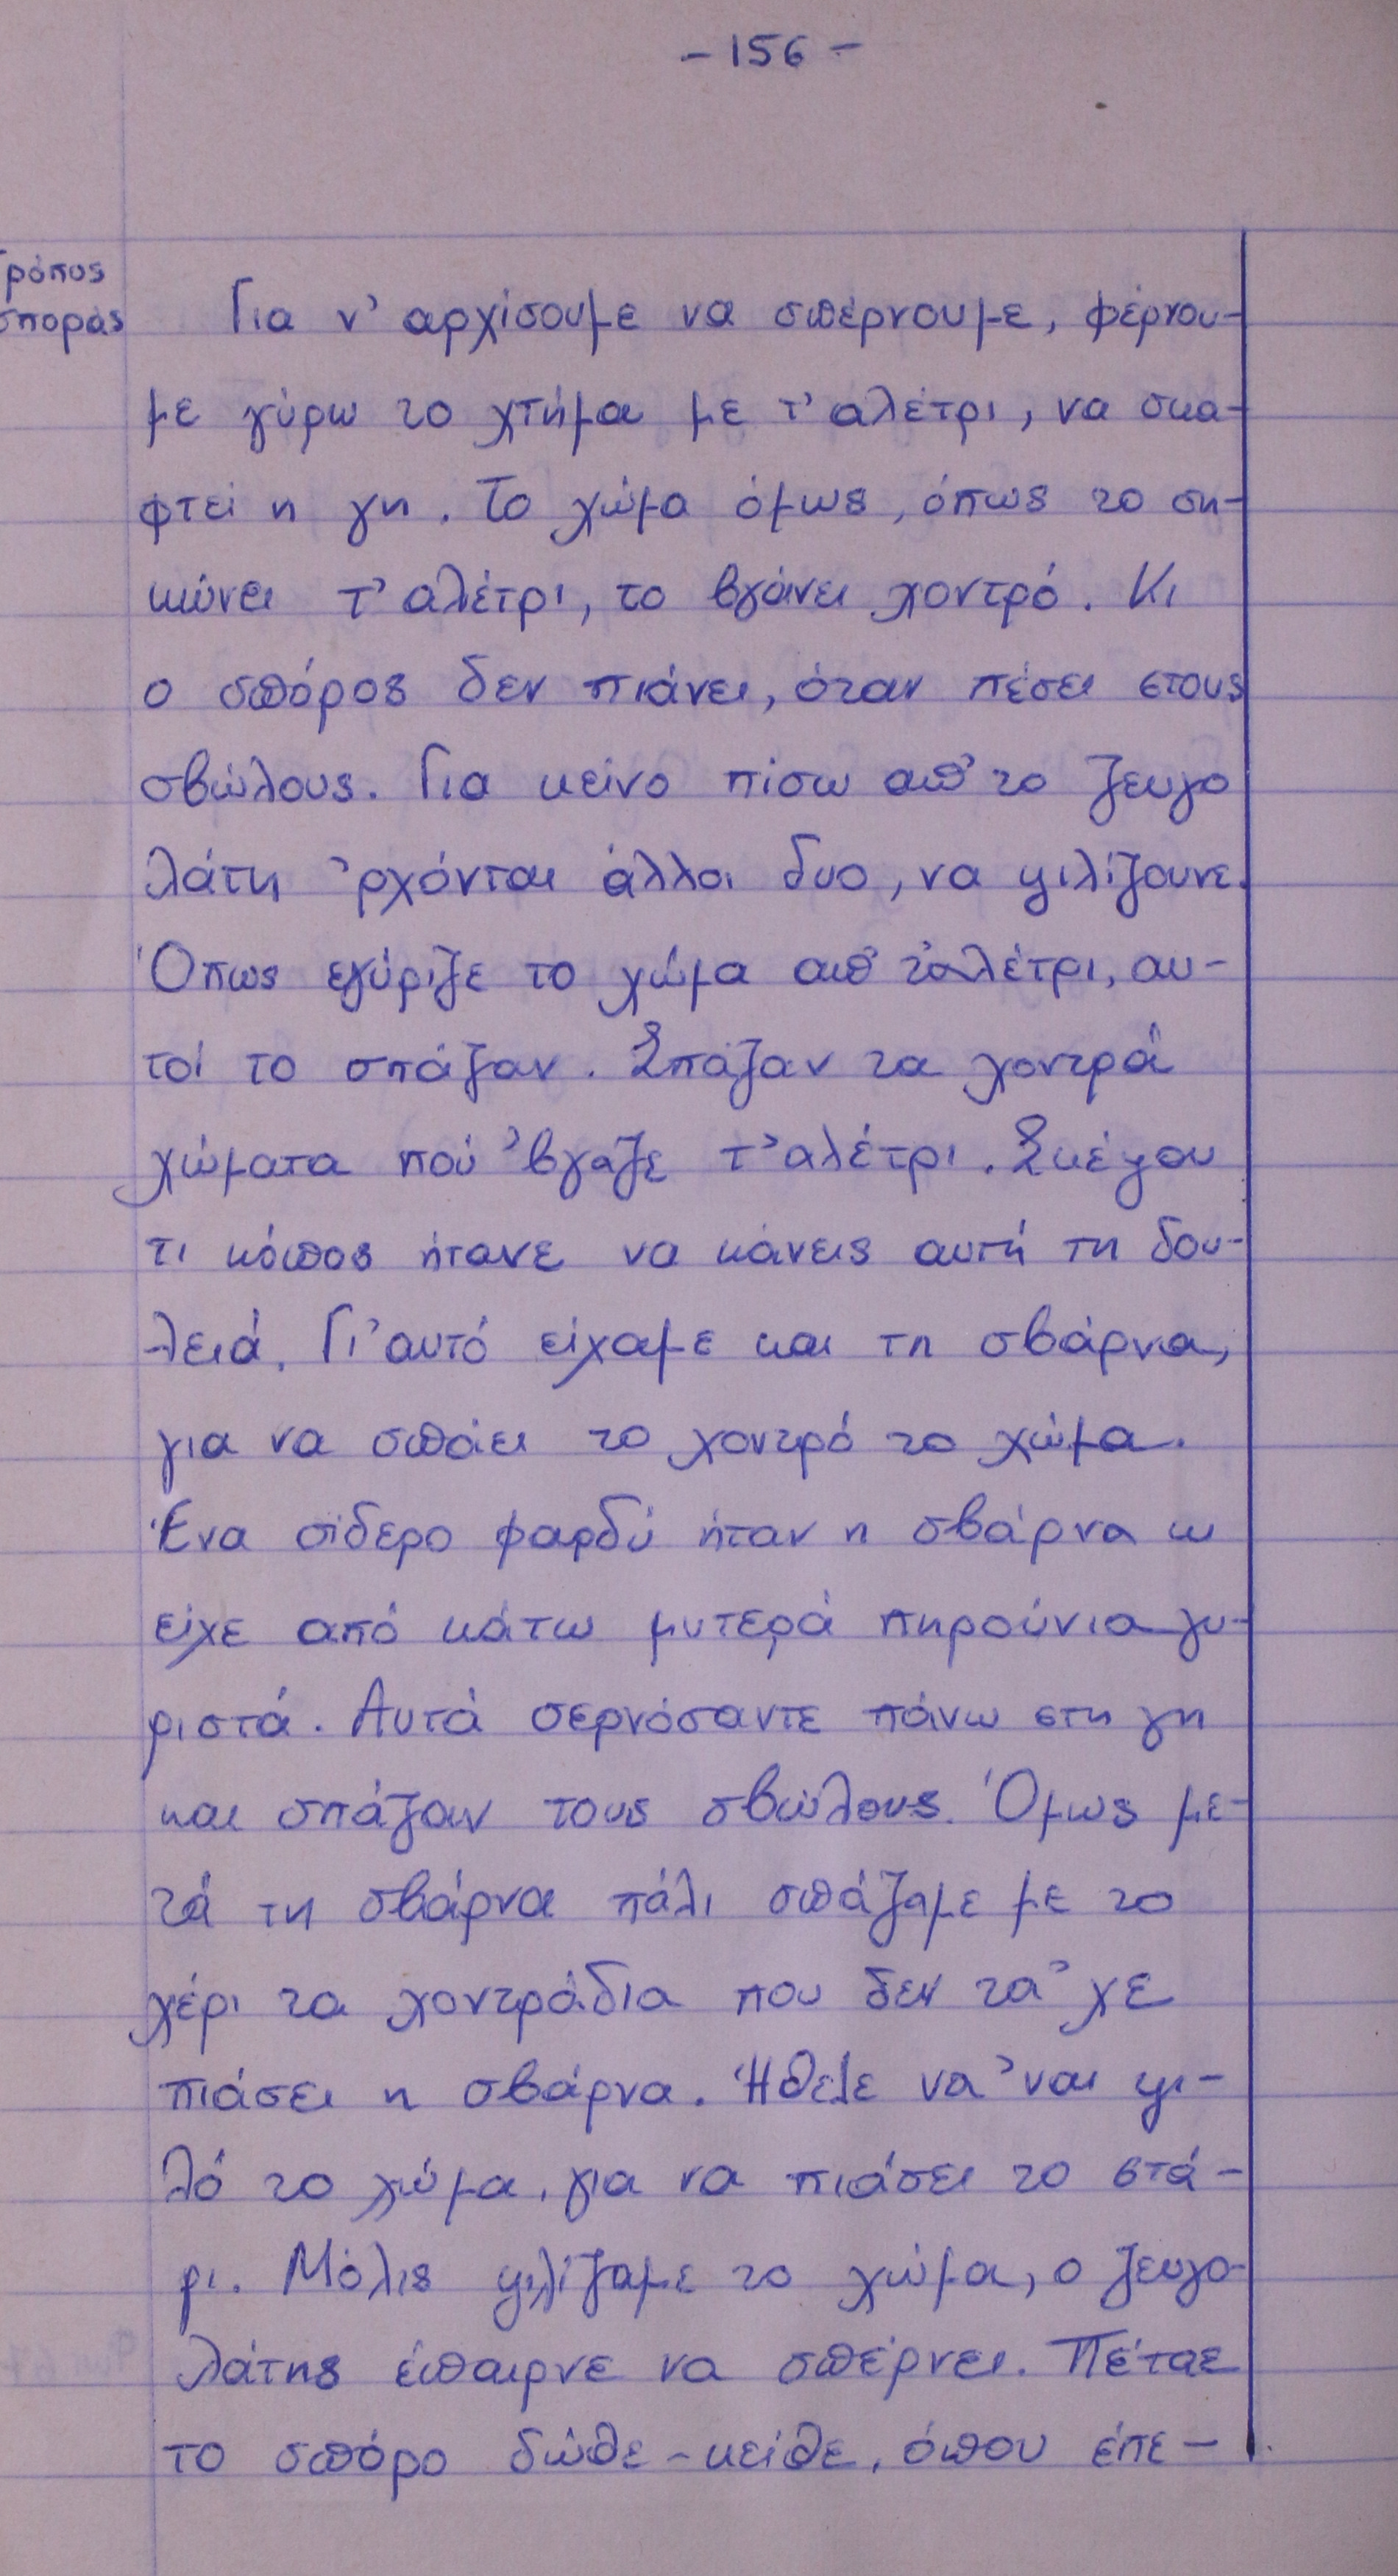 - 156 -
Τρόπος
σποράς
Για ν' αρχίσουμε να σπέρνουμε, φέρνου-
με γύρω το χτήμα με τ' αλέτρι, να σκα-
φτεί η γη. Το χώμα όμως, όπως το ση-
κώνει τ' αλέτρι, το βγάνει χοντρό. Κι
ο σπόρος δεν πιάνει, όταν πέσει στους
σβώλους. Για κείνο πίσω απ' το ζευγο
λάτη 'ρχόνται άλλοι δυο, να ψιλίζουνε.
Όπως εγύριζε το χώμα απ' τ' αλέτρι, αυ-
τοί το σπάζαν. Σπάζαν τα χοντρά
χώματα πού 'βγαζε τ' αλέτρι. Σκέψου
τι κόπος ήτανε να κάνεις αυτή τη δου-
λειά. Γι' αυτό είχαμε και τη σβάρνα,
για να σπάει το χοντρό το χώμα.
Ένα σίδερο φαρδύ ήταν η σβάρνα κι
είχε από κάτω μυτερά πηρούνια γυ-
ριστά. Αυτά σερνόσαντε πάνω στη γη
και σπάζαν τους σβώλους. Όμως με-
τά τη σβάρνα πάλι σπάζαμε με το
χέρι τα χοντράδια που δεν τα 'χε
πιάσει η σβάρνα. Ήθελε να 'ναι ψι-
λό το χώμα, για να πιάσει το στά-
ρι. Μόλις ψιλίζαμε το χώμα, ο ζευγο-
λάτης έπαιρνε να σπέρνει. Πέταε
το σπόρο δώθε - κείθε, όπου έπε-